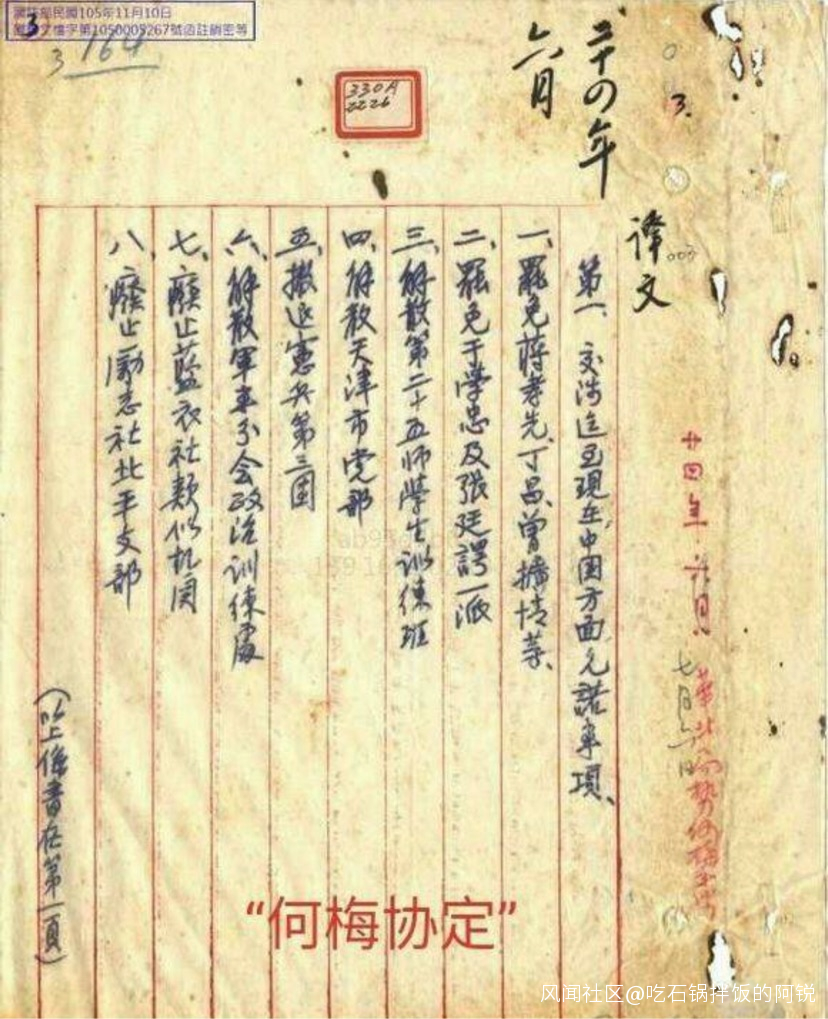 國防部民國105年11月10日
國 文檔字第1050005267號函註銷密等
3
3 164
330A
2226
二十四年
六月
3.
譯文
廿四年 六月
七月六日
第一、交涉迄至現在中国方面允諾事項、
一、罷免蔣孝先、丁昌、曾擴情等、
二、罷免于学忠及張廷諤一派
三、解散第二十五師學生訓練班
四、解散天津市党部
五、撤退憲兵第三團
六、解散軍事分会政治訓練處
七、廢止藍衣社類似机関
八、廢止勵志社北平支部
(以上係書在第一頁)
“何梅协定”
风闻社区@吃石锅拌饭的阿锐